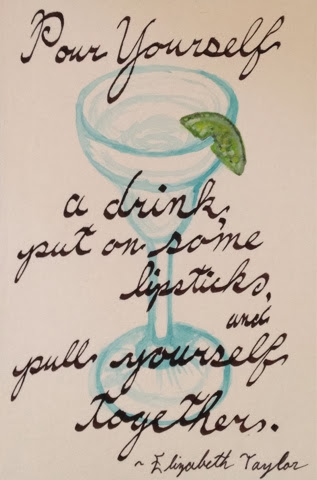 Pour Yourself
a drink,
put on some
lipstick,
and
pull yourself
together.
~ Elizabeth Taylor